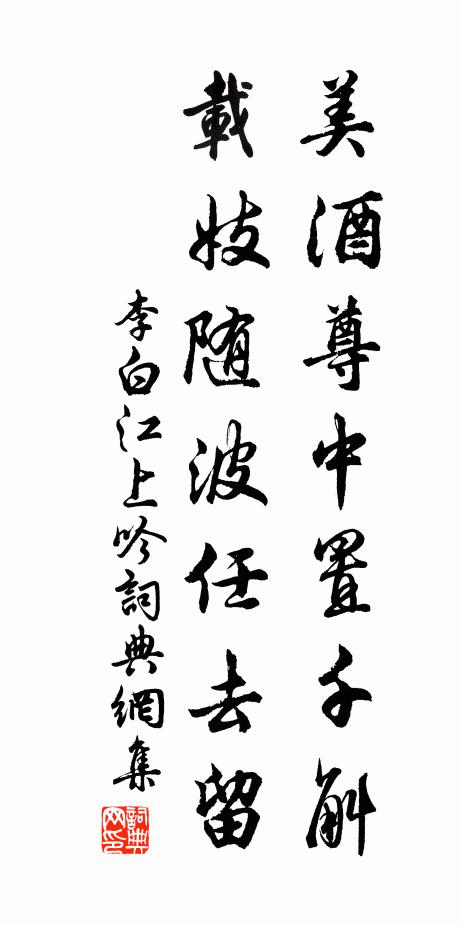 美酒尊中置千斛
載妓随波任去留
李白江上吟詞典網集
詞典网印